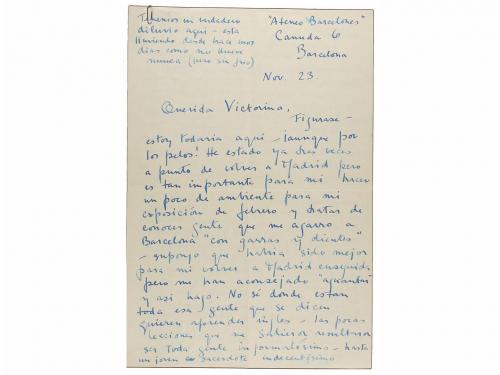 Tenemos un verdadero
diluvio aquí - está
lloviendo desde hace unos
días como no llueve
nunca (pero sin frío)
"Ateneo Barcelones"
Canuda 6
Barcelona
Nov. 23.
Querida Victorina,
Figurase -
estoy todavía aquí - ¡aunque por
los pelos! He estado ya tres veces
a punto de volver a Madrid pero
es tan importante para mí hacer
un poco de ambiente para mi
exposición de febrero y tratar de
conocer gente que me agarro a
Barcelona "con garras y dientes"
- supongo que habría sido mejor
para mí volver a Madrid enseguida
pero me han aconsejado "aguantar"
y así hago. No sé donde están
toda esa gente que se dicen
quieren aprender inglés - las pocas
lecciones que me salieron resultaron
ser toda gente informalísima - hasta
un joven sacerdote indecentísimo